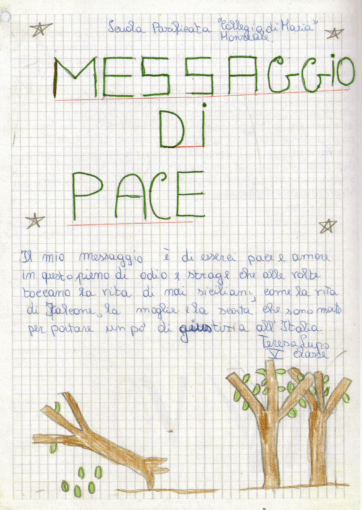 Scuola Parificata "Collegio di Maria"
Monreale
MESSAGGIO
DI
PACE
Il mio messaggio è di esserci pace e amore
in questo pieno di odio e strage che alle volte
toccano la vita di noi siciliani, come la vita
di Falcone, la moglie e la scorta che sono morti
per portare un po' di giustizia all'Italia
Teresa Lupo
V classe